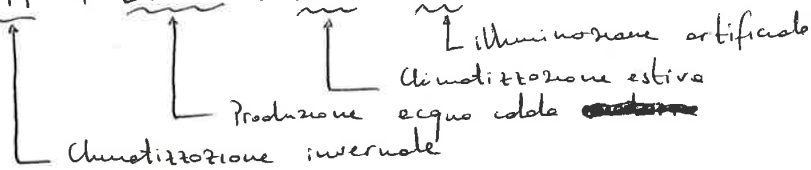 illuminazione artificiale
Climatizzazione estiva
Produzione acqua calda
Climatizzazione invernale